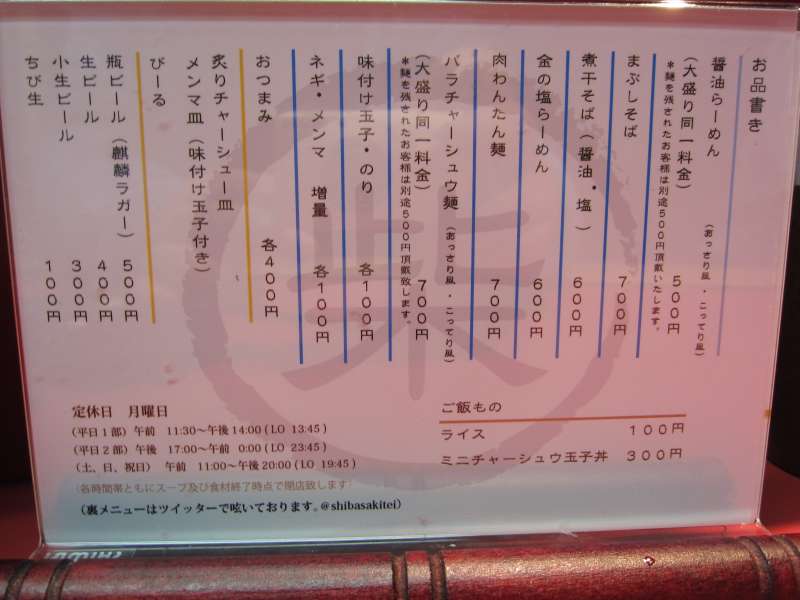 お品書き
醤油らーめん (あっさり風・こってり風)
(大盛り同一料金) 500円
*麺を残されたお客様は別途500円頂戴いたします。
まぶしそば 700円
煮干そば (醤油・塩) 600円
金の塩らーめん 600円
肉わんたん麺 700円
バラチャーシュウ麺 (あっさり風・こってり風)
(大盛り同一料金) 700円
*麺を残されたお客様は別途500円頂戴致します。
味付け玉子・のり 各100円
ネギ・メンマ 増量 各100円
おつまみ 各400円
炙りチャーシュー皿
メンマ皿 (味付け玉子付き)
びーる
瓶ビール (麒麟ラガー) 500円
生ビール 400円
小生ビール 300円
ちび生 100円
柴
ご飯もの
ライス 100円
ミニチャーシュウ玉子丼 300円
定休日 月曜日
(平日1部) 午前 11:30~午後14:00 (LO 13:45)
(平日2部) 午後 17:00~午前 0:00 (LO 23:45)
(土、日、祝日) 午前 11:00~午後20:00 (LO 19:45)
(各時間帯ともにスープ及び食材終了時点で閉店致します)
(裏メニューはツイッターで呟いております。@shibasakitei)